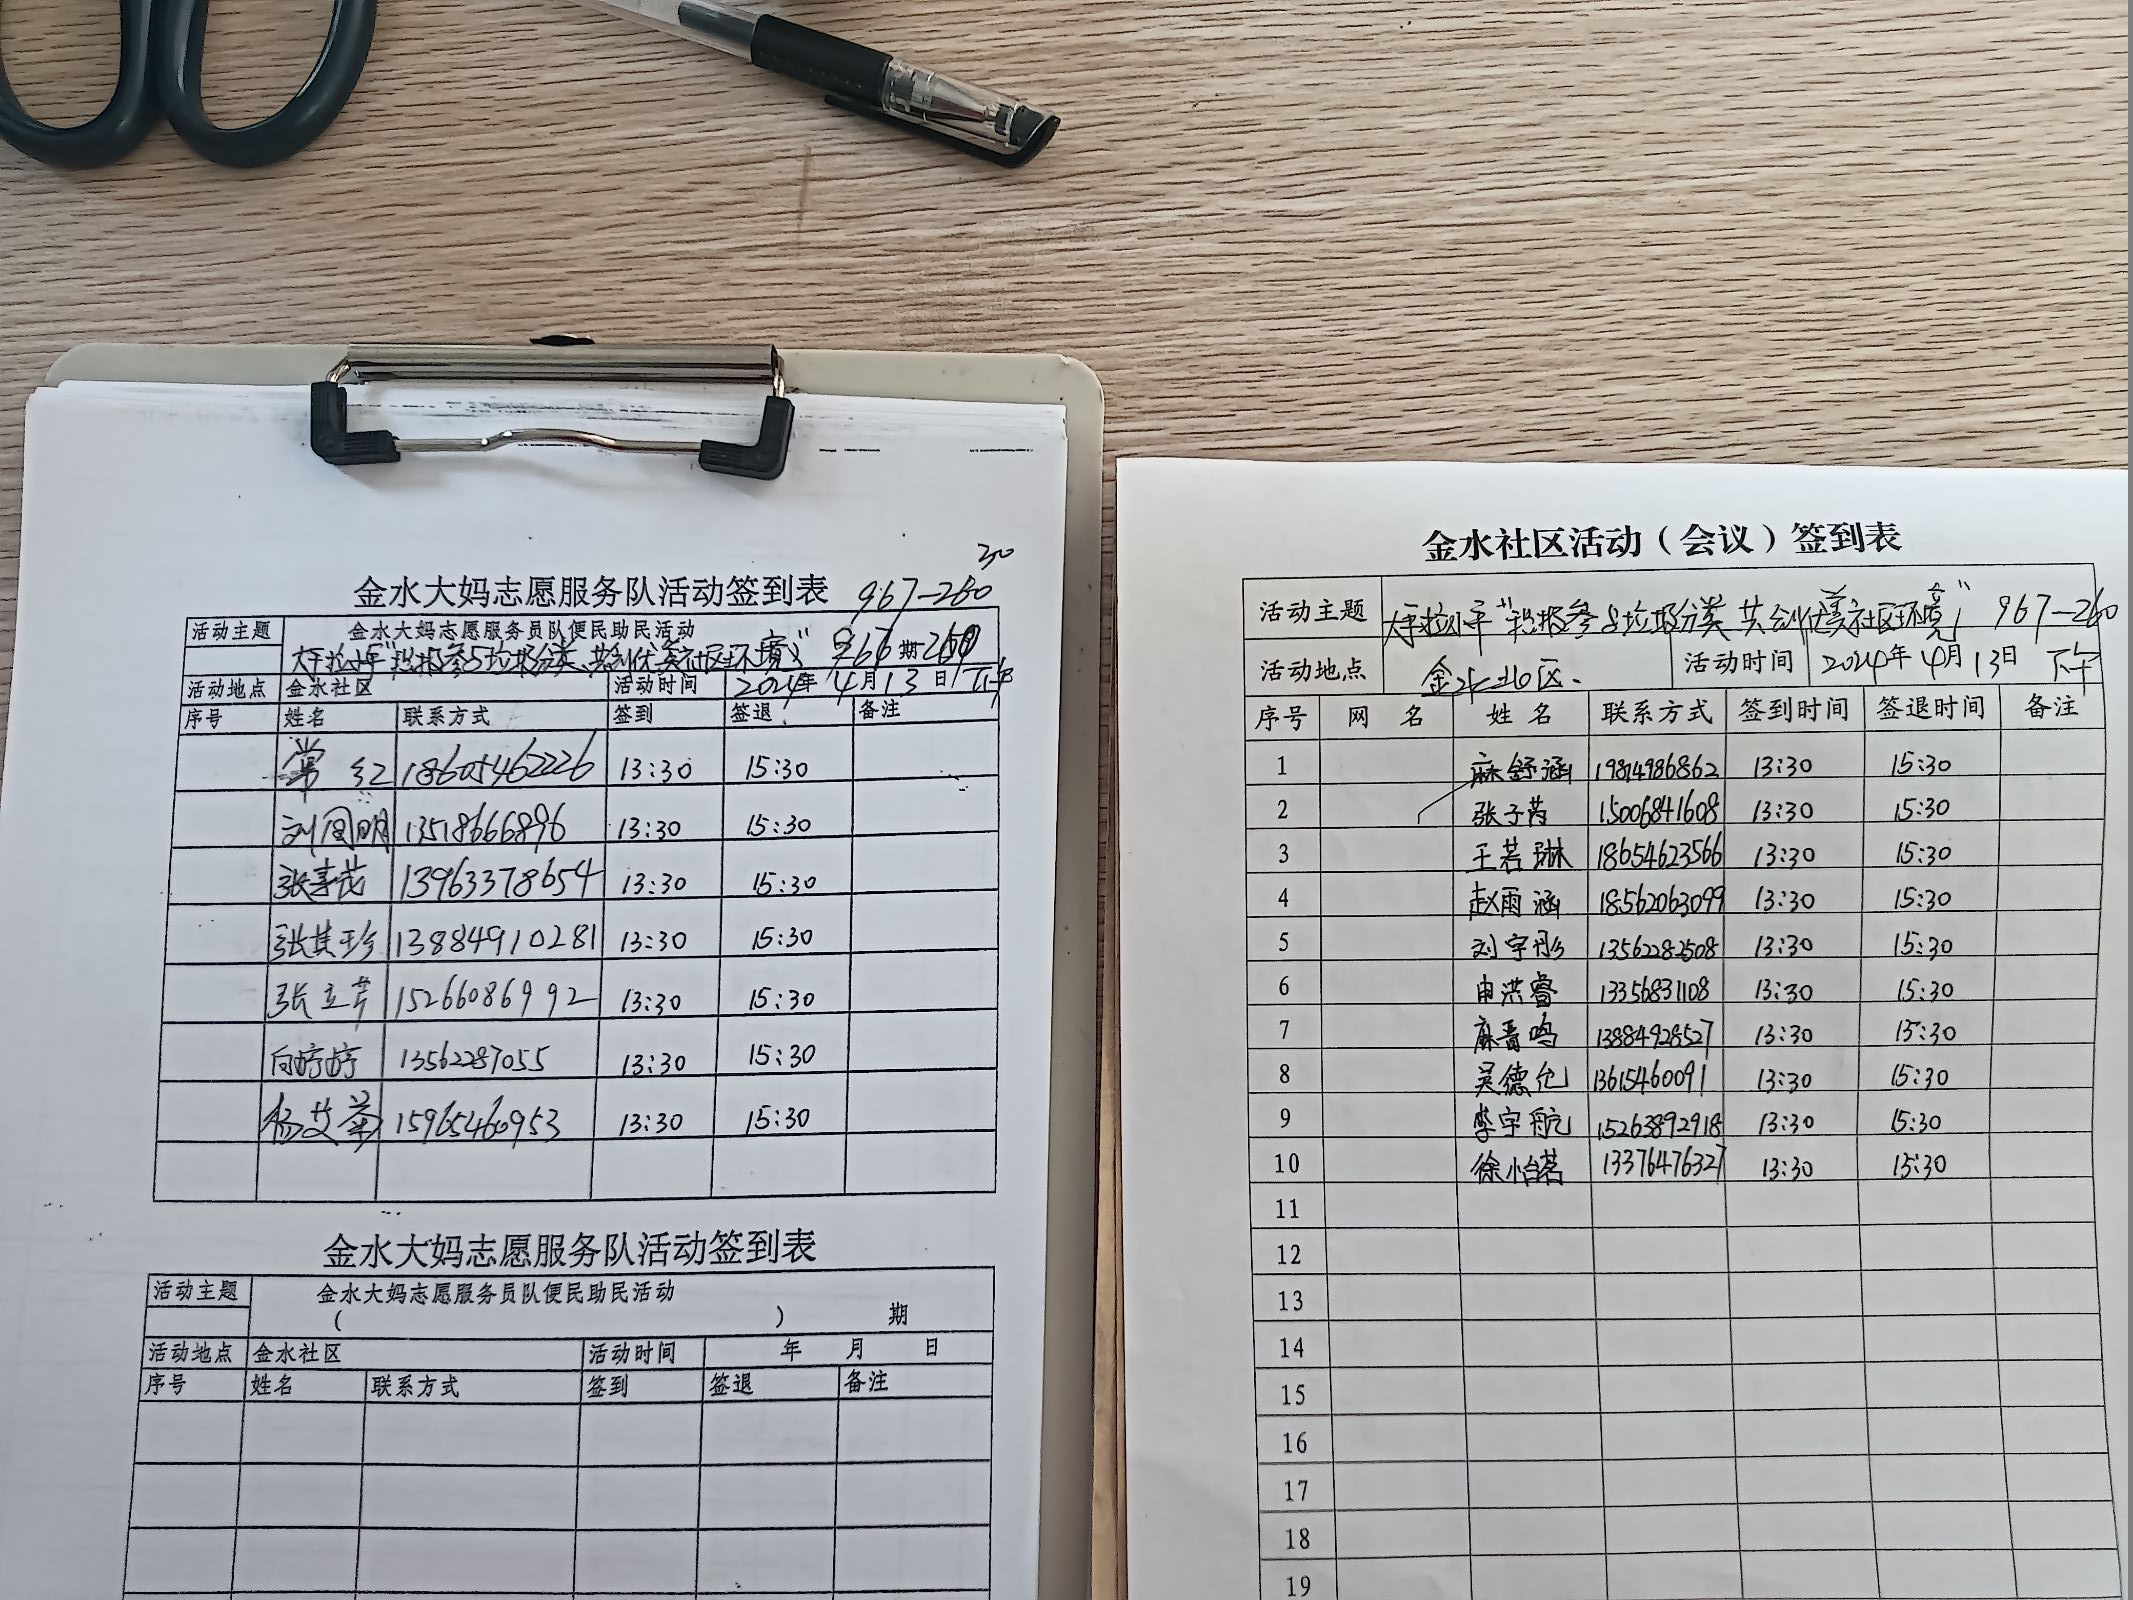 30
金水大妈志愿服务队活动签到表 967-260
活动主题 金水大妈志愿服务员队便民助民活动
大手拉小手"积极参与垃圾分类、共创优美社区环境" 期
活动地点 金水社区 活动时间 2024年 4月13日 下午
序号 姓名 联系方式 签到 签退 备注
常红 18605462226 13:30 15:30
刘国明 13518666896 13:30 15:30
13963378654 13:30 15:30
张其珍 13884910281 13:30 15:30
张立芹 15266086992 13:30 15:30
向婷婷 13562287055 13:30 15:30
杨艾菊 15965460953 13:30 15:30
金水大妈志愿服务队活动签到表
活动主题 金水大妈志愿服务员队便民助民活动
( ) 期
活动地点 金水社区 活动时间 年 月 日
序号 姓名 联系方式 签到 签退 备注
金水社区活动（会议）签到表
活动主题 大手拉小手"积极参与垃圾分类 共创优美社区环境" 967-260
活动地点 金水社区. 活动时间 2024年4月13日 下午
序号 网 名 姓 名 联系方式 签到时间 签退时间 备注
1 麻舒涵 19814986862 13:30 15:30
2 张子芮 15006841608 13:30 15:30
3 王若琳 18654623566 13:30 15:30
4 赵雨涵 18562063099 13:30 15:30
5 刘宇彤 13562282508 13:30 15:30
6 申洪睿 13356831108 13:30 15:30
7 麻晋鸣 13884928527 13:30 15:30
8 吴德化 13615460091 13:30 15:30
9 李宇航 15263892918 13:30 15:30
10 徐怡茗 13376476327 13:30 15:30
11
12
13
14
15
16
17
18
19